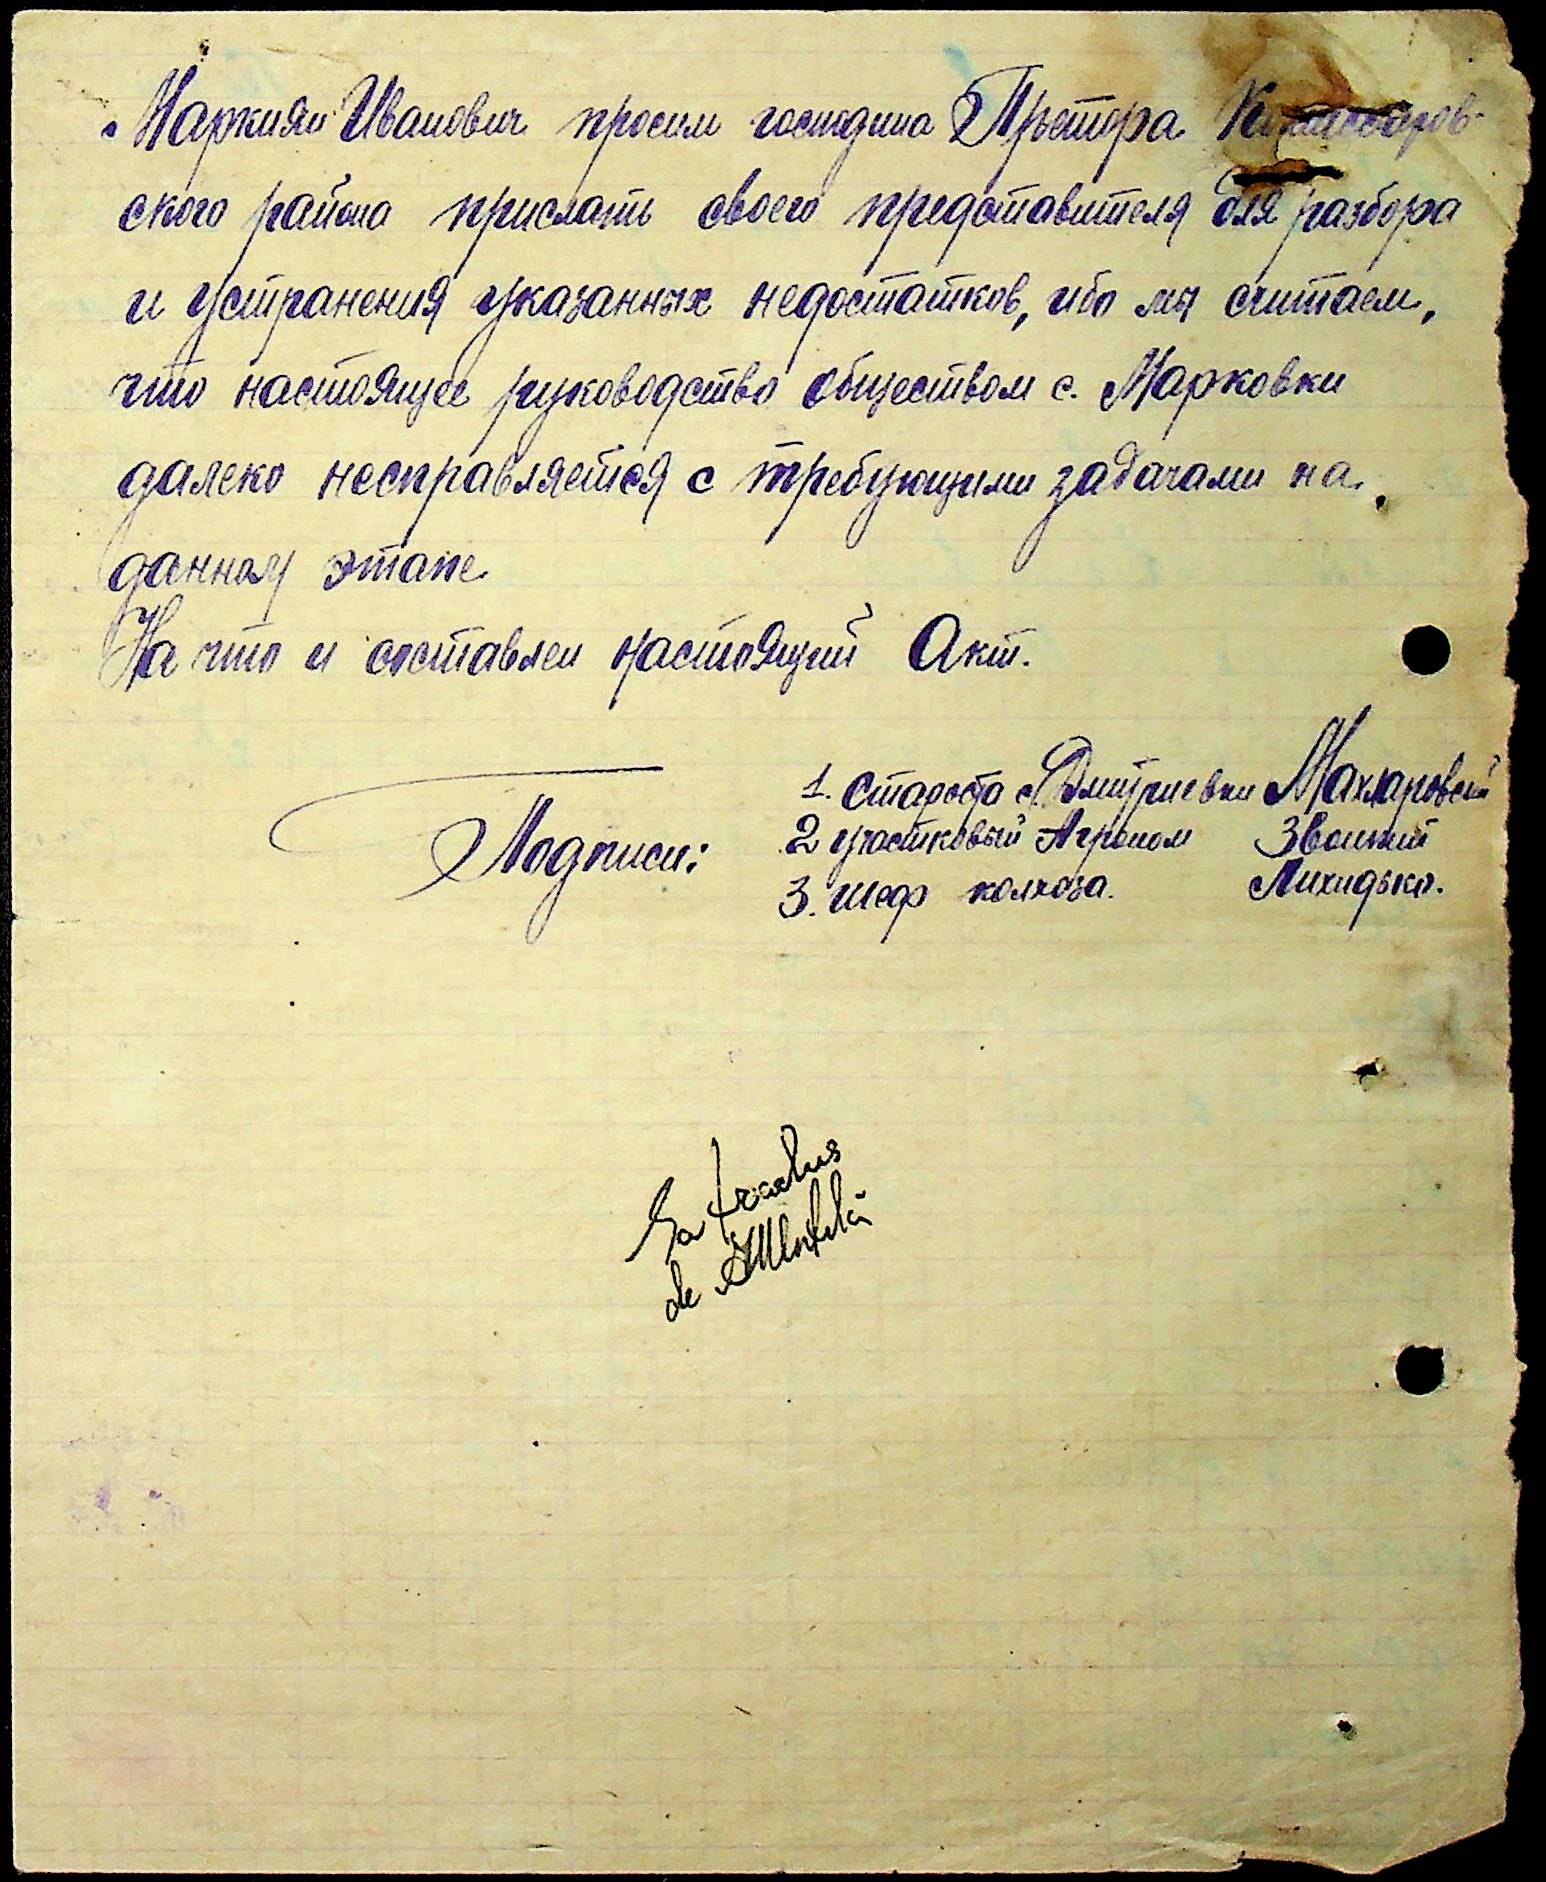 Маркиян Иванович просим господина Претора Комиссаров-
ского района прислать своего представителя для разбора
и устранения указанных недостатков, ибо мы считаем,
что настоящее руководство обществом с. Марковки
далеко несправляется с требующими задачами на
данному этапе
На что и составлен настоящий Акт.
Подписи:
1. Староста с. Дмитриевки
2 участковый Агроном
3. шеф колхоза. Лихидько.